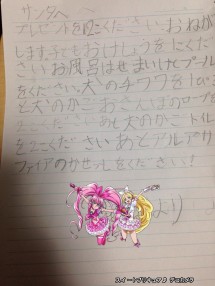 サンタへ
プレゼントを2こください おねが
します。子どもおけしょうを1こくだ
さい お風呂はせまいけどプール
をください。犬のチワワを1ぴ
と犬のかごおさんぽのロープと
ください あと犬のかごトイレ
を2こください あとアルアリ
ファイアのかせットをください！
より
スイートプリキュア♪ デコカメラ